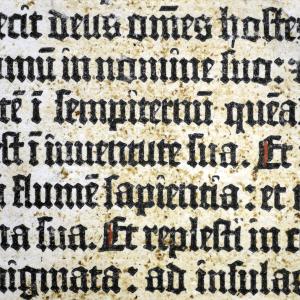 ecit deus om̄es hoste
omū in nomine suo:
tē ī sempiternū quēa
st ī iuventute sua. Et
flumē sapientia: et
a sua. Et replesti in
nigmata: ad insulas